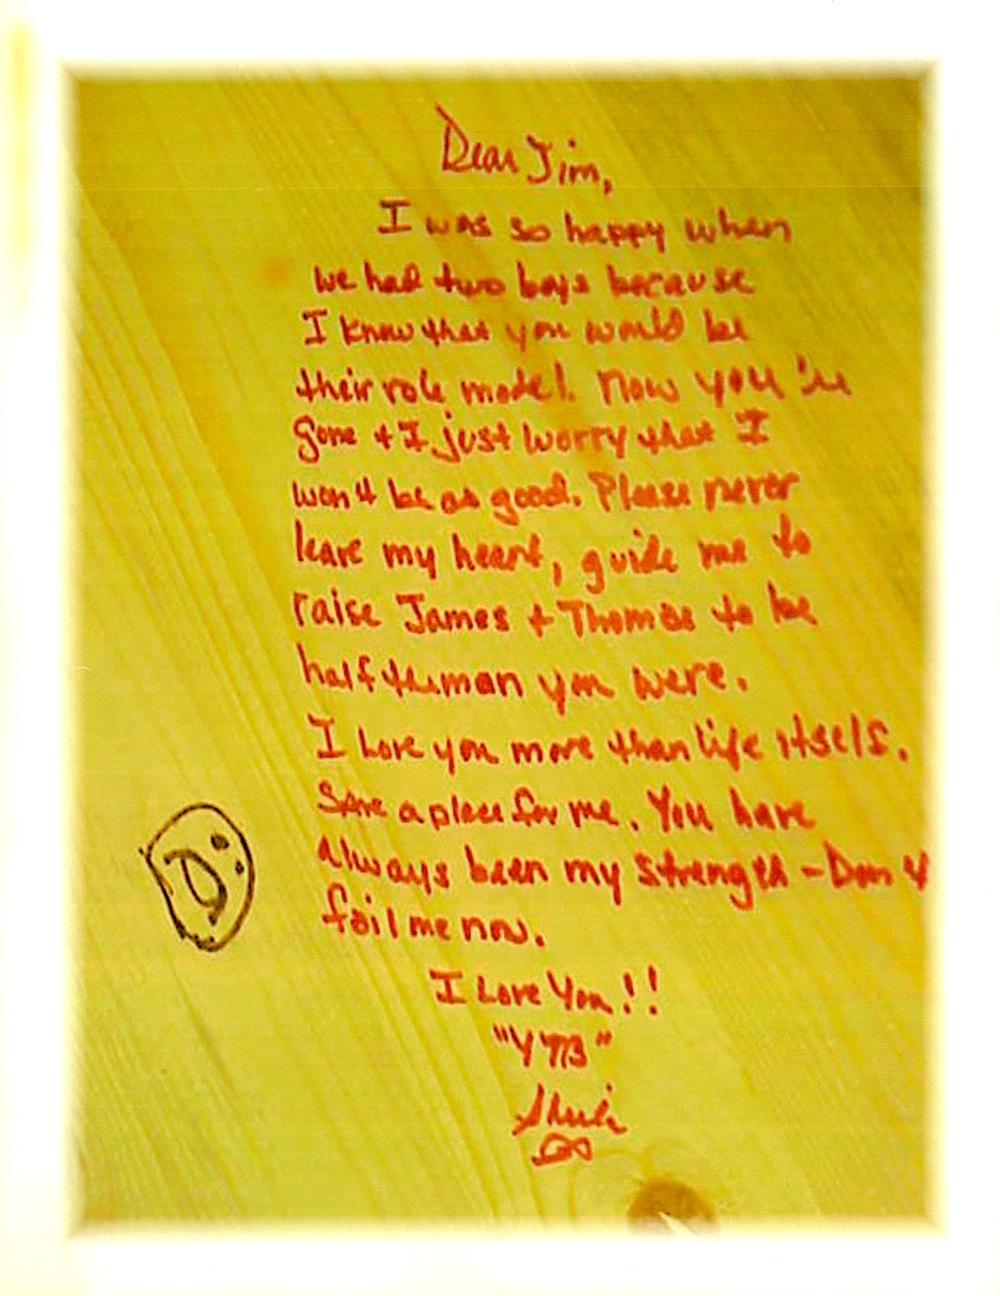 Dear Jim,
I was so happy when
we had two boys because
I knew that you would be
their role model. Now you're
gone + I just worry that I
won't be as good. Please never
leave my heart, guide me to
raise James + Thomas to be
half the man you were.
I Love you more than life itself.
Save a place for me. You have
always been my strength - Don't
fail me now.
I Love You!!